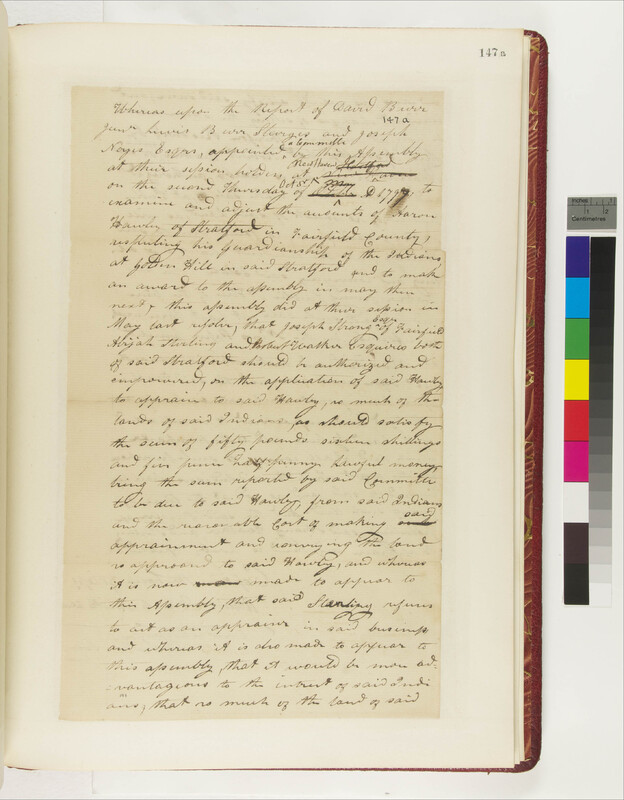 147 B
147 a
Whereas upon the Report of David Burr
Junr Lewis Burr Sturges and Joseph
a Committe
Noyes Esqrs, appointed by this Assembly
New Haven
at their session holden at
Octobr
on the second Thursday of A D 179 to
examine and adjust the accounts of Aaron
Hawley of Stratford in Fairfield County,
respecting his Guardianship of the Indians
at Golden Hill in said Stratford and to make
an award to the assembly in may then
next, this assembly did at their session in
Esqr
May last resolve, that Joseph Strong of Fairfield
Abijah Sterling and Robert Walker Esquires both
of said Stratford should be authorized and
impowered, on the application of said Hawley
to appraise to said Hawley, so much of the
lands of said Indians, as should satisfy
the sum of fifty pounds sixteen shillings
and five pence half penny lawful money
being the sum reported by said Committe
to be due to said Hawley, from said Indians
said
and the reasonable Cost of making
appraisement and conveying the land
so appraised to said Hawley, and whereas
it is now made to appear to
this Assembly, that said Sterling refuses
to act as an appraiser in said business
and whereas it is also made to appear to
this assembly, that it would be more ad-
vantageous to the interest of said Indi
ans, that so much of the land of said